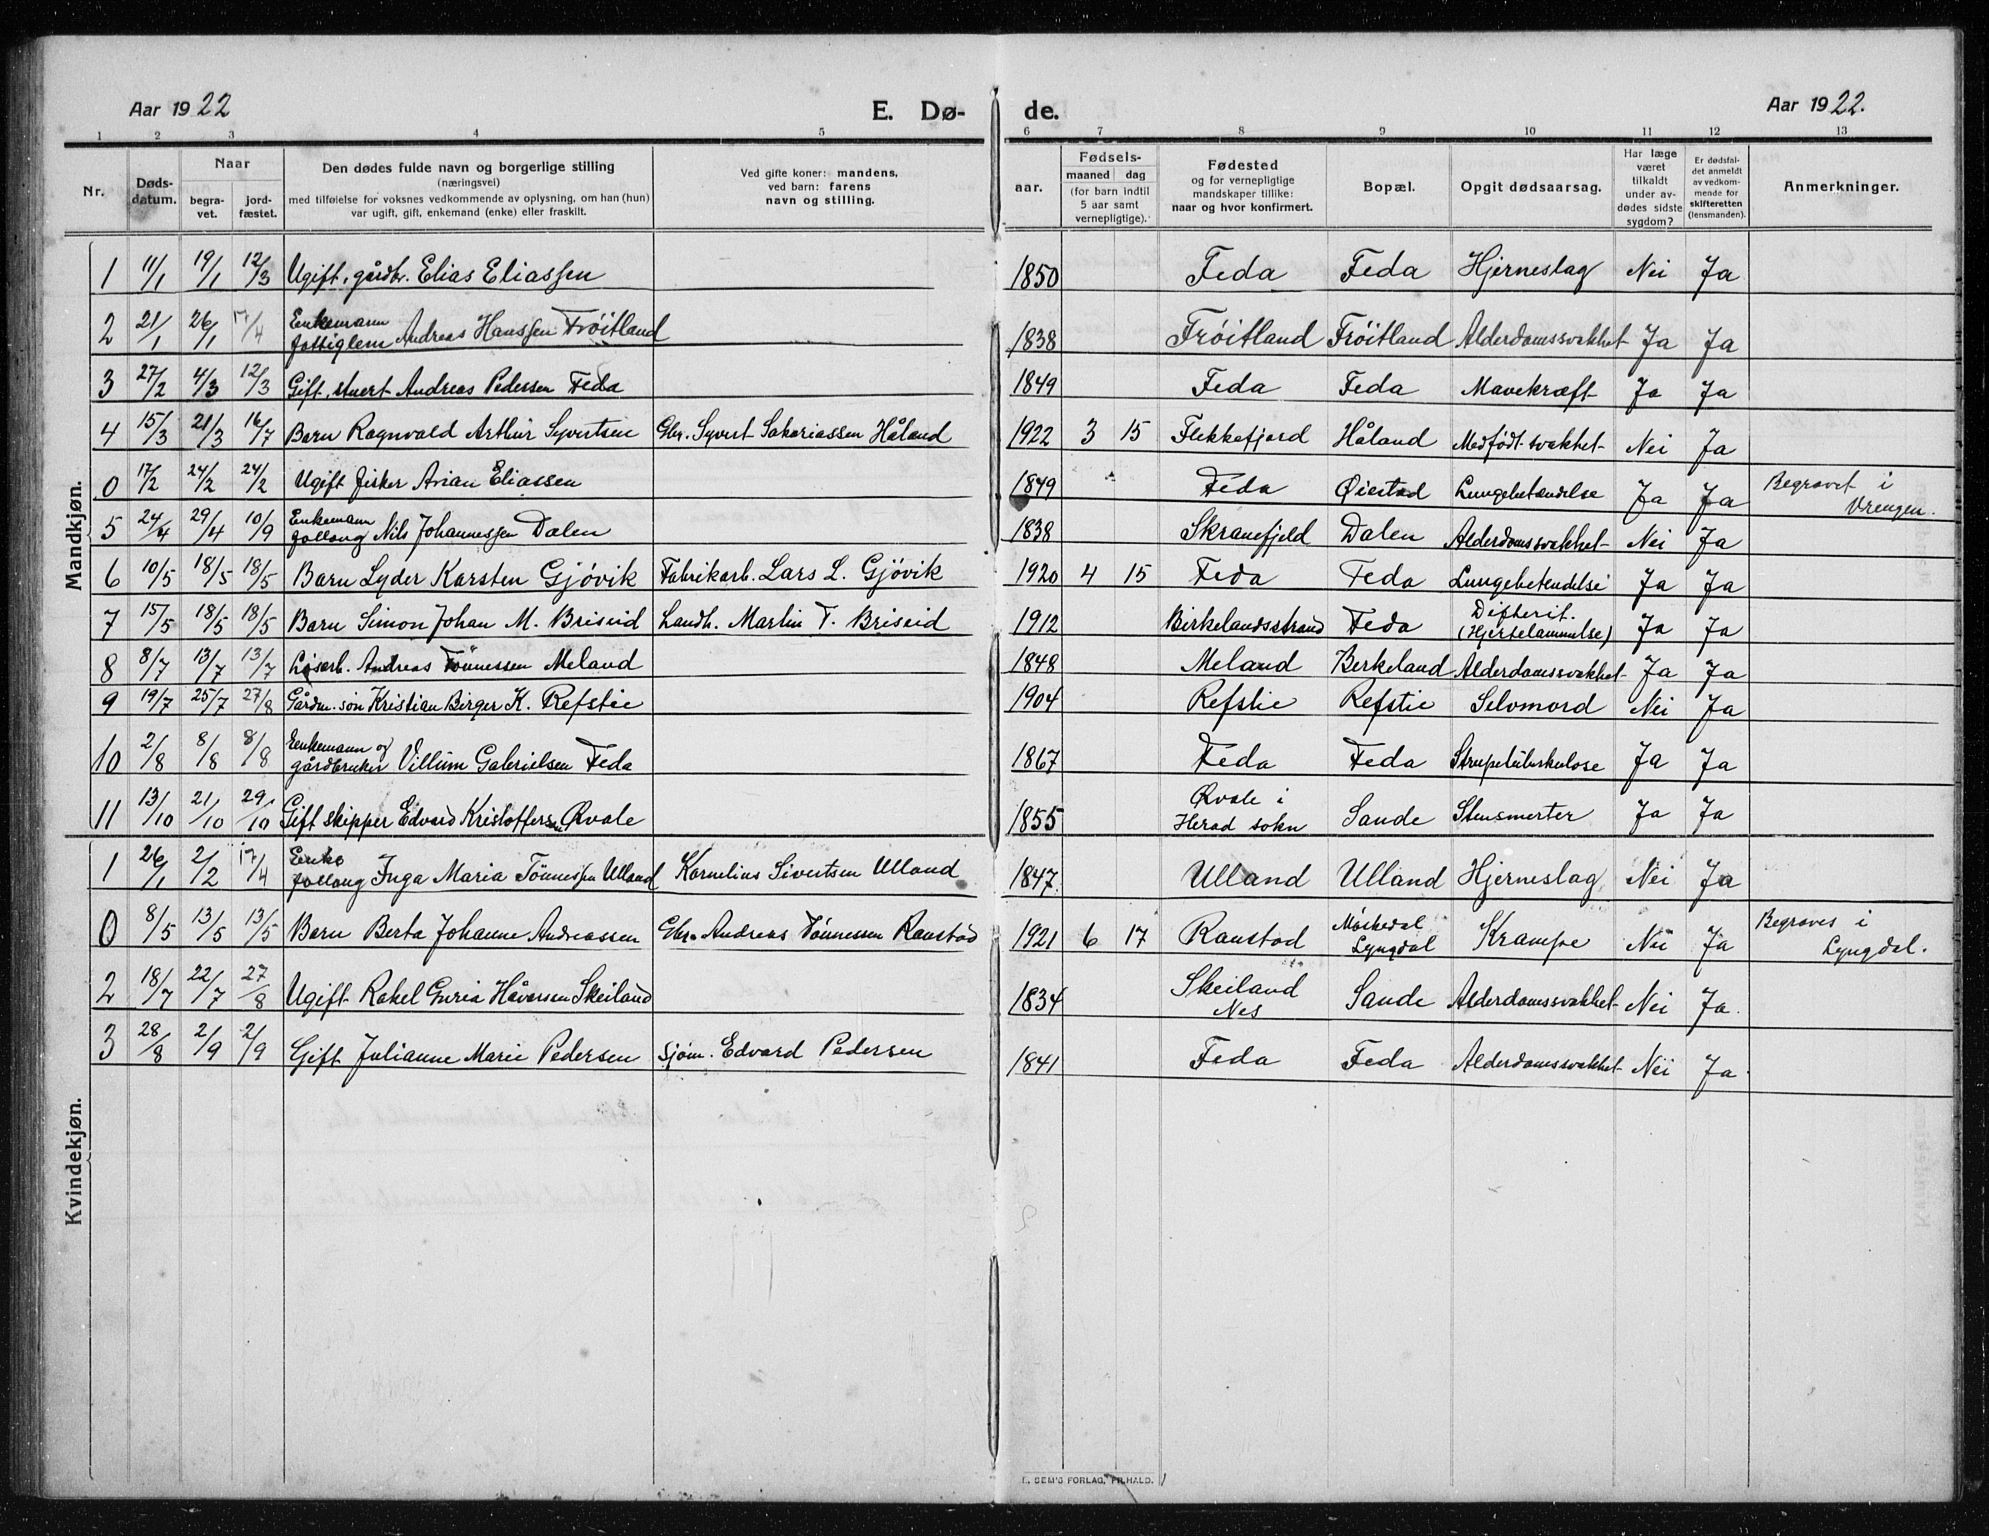 Aar 1922 E. Dø- de. Aar 1922.
1 2 3 4 5 6 7 8 9 10 11 12 13
Nr. Døds-datum. Naar begra-vet. jord-fæstet. Den dødes fulde navn og borgerlige stilling (næringsvei) med tilføielse for voksnes vedkommende av oplysning, om han (hun) var ugift, gift, enkemand (enke) eller fraskilt. Ved gifte koner: mandens, ved barn: farens navn og stilling. aar. Fødsels- maaned dag (for barn indtil 5 aar samt vernepligtige). Fødested og for vernepligtige mandskaper tillike: naar og hvor konfirmert. Bopæl. Opgit dødsaarsag. Har læge været tilkaldt under av-dødes sidste sygdom? Er dødsfal-det anmeldt av vedkom-mende for skifteretten (lensmanden). Anmerkninger.
Mandkjøn.
1 11/1 19/1 12/3 Ugift, gårdbr. Elias Eliassen 1850 Feda Feda Hjerneslag Nei Ja
2 21/1 26/1 17/4 Enkemann fattiglem Andreas Hanssen Frøitland 1838 Frøitland Frøitland Alderdomssvakhet Ja Ja
3 27/2 4/3 12/3 Gift, stuert Andreas Pedersen Feda 1849 Feda Feda Mavekræft Ja Ja
4 15/3 21/3 16/7 Barn Ragnvald Arthur Syvertsen Gbr. Syvert Sakariassen Håland 1922 3 15 Flekkefjord Håland Medfødt svakhet Nei Ja
0 17/2 24/2 24/2 Ugift fisker Arian Eliassen 1849 Feda Øiestad Lungebetændelse Ja Ja Begravet i Vrengen.
5 24/4 29/4 10/9 Enkemann follaug Nils Johannessen Dalen 1838 Skranefjeld Dalen Alderdomssvakhet Nei Ja
6 10/5 18/5 18/5 Barn Lyder Karsten Gjøvik Fabrikarb. Lars L. Gjøvik 1920 4 15 Feda Feda Lungebetendelse Ja Ja
7 15/5 18/5 18/5 Barn Simon Johan M. Briseid Landh. Martin T. Briseid 1912 Birkelandsstrand Feda Difterit. (Hjertelammelse) Ja Ja
8 8/7 13/7 13/7 Løsarb. Andreas Tönnessen Meland 1848 Meland Berkeland Alderdomssvakhet Ja Ja
9 19/7 25/7 27/8 Gårdm. søn Kristian Birger K. Refstie 1904 Refstie Refstie Selvmord Nei Ja
10 2/8 8/8 8/8 Enkemann og gårdbruker Villum Gabrielsen Feda 1867 Feda Feda Strupetuberkulose Ja Ja
11 13/10 21/10 29/10 Gift skipper Edvard Kristoffersen Øvale 1855 Øvale i Herad sokn Sande Stensmerter Ja Ja
Kvindekjøn.
1 26/1 2/2 17/4 Enke follaug Inga Maria Tönnessen Ulland Kornelius Sivertsen Ulland 1847 Ulland Ulland Hjerneslag Nei Ja
0 8/5 13/5 13/5 Barn Berta Johanne Andreassen Gbr. Andreas Tönnessen Raustad 1921 6 17 Raustad Møskedal Lyngdal Krampe Nei Ja Begraves i Lyngdal.
2 18/7 22/7 27/8 Ugift Rakel Guria Håversen Skeiland 1834 Skeiland Nes Sande Alderdomssvakhet Nei Ja.
3 28/8 2/9 2/9 Gift Julianne Marie Pedersen Sjøm. Edvard Pedersen 1841 Feda Feda Alderdomssvakhet Nei Ja
E. SEM'S FORLAG, FR.HALD.